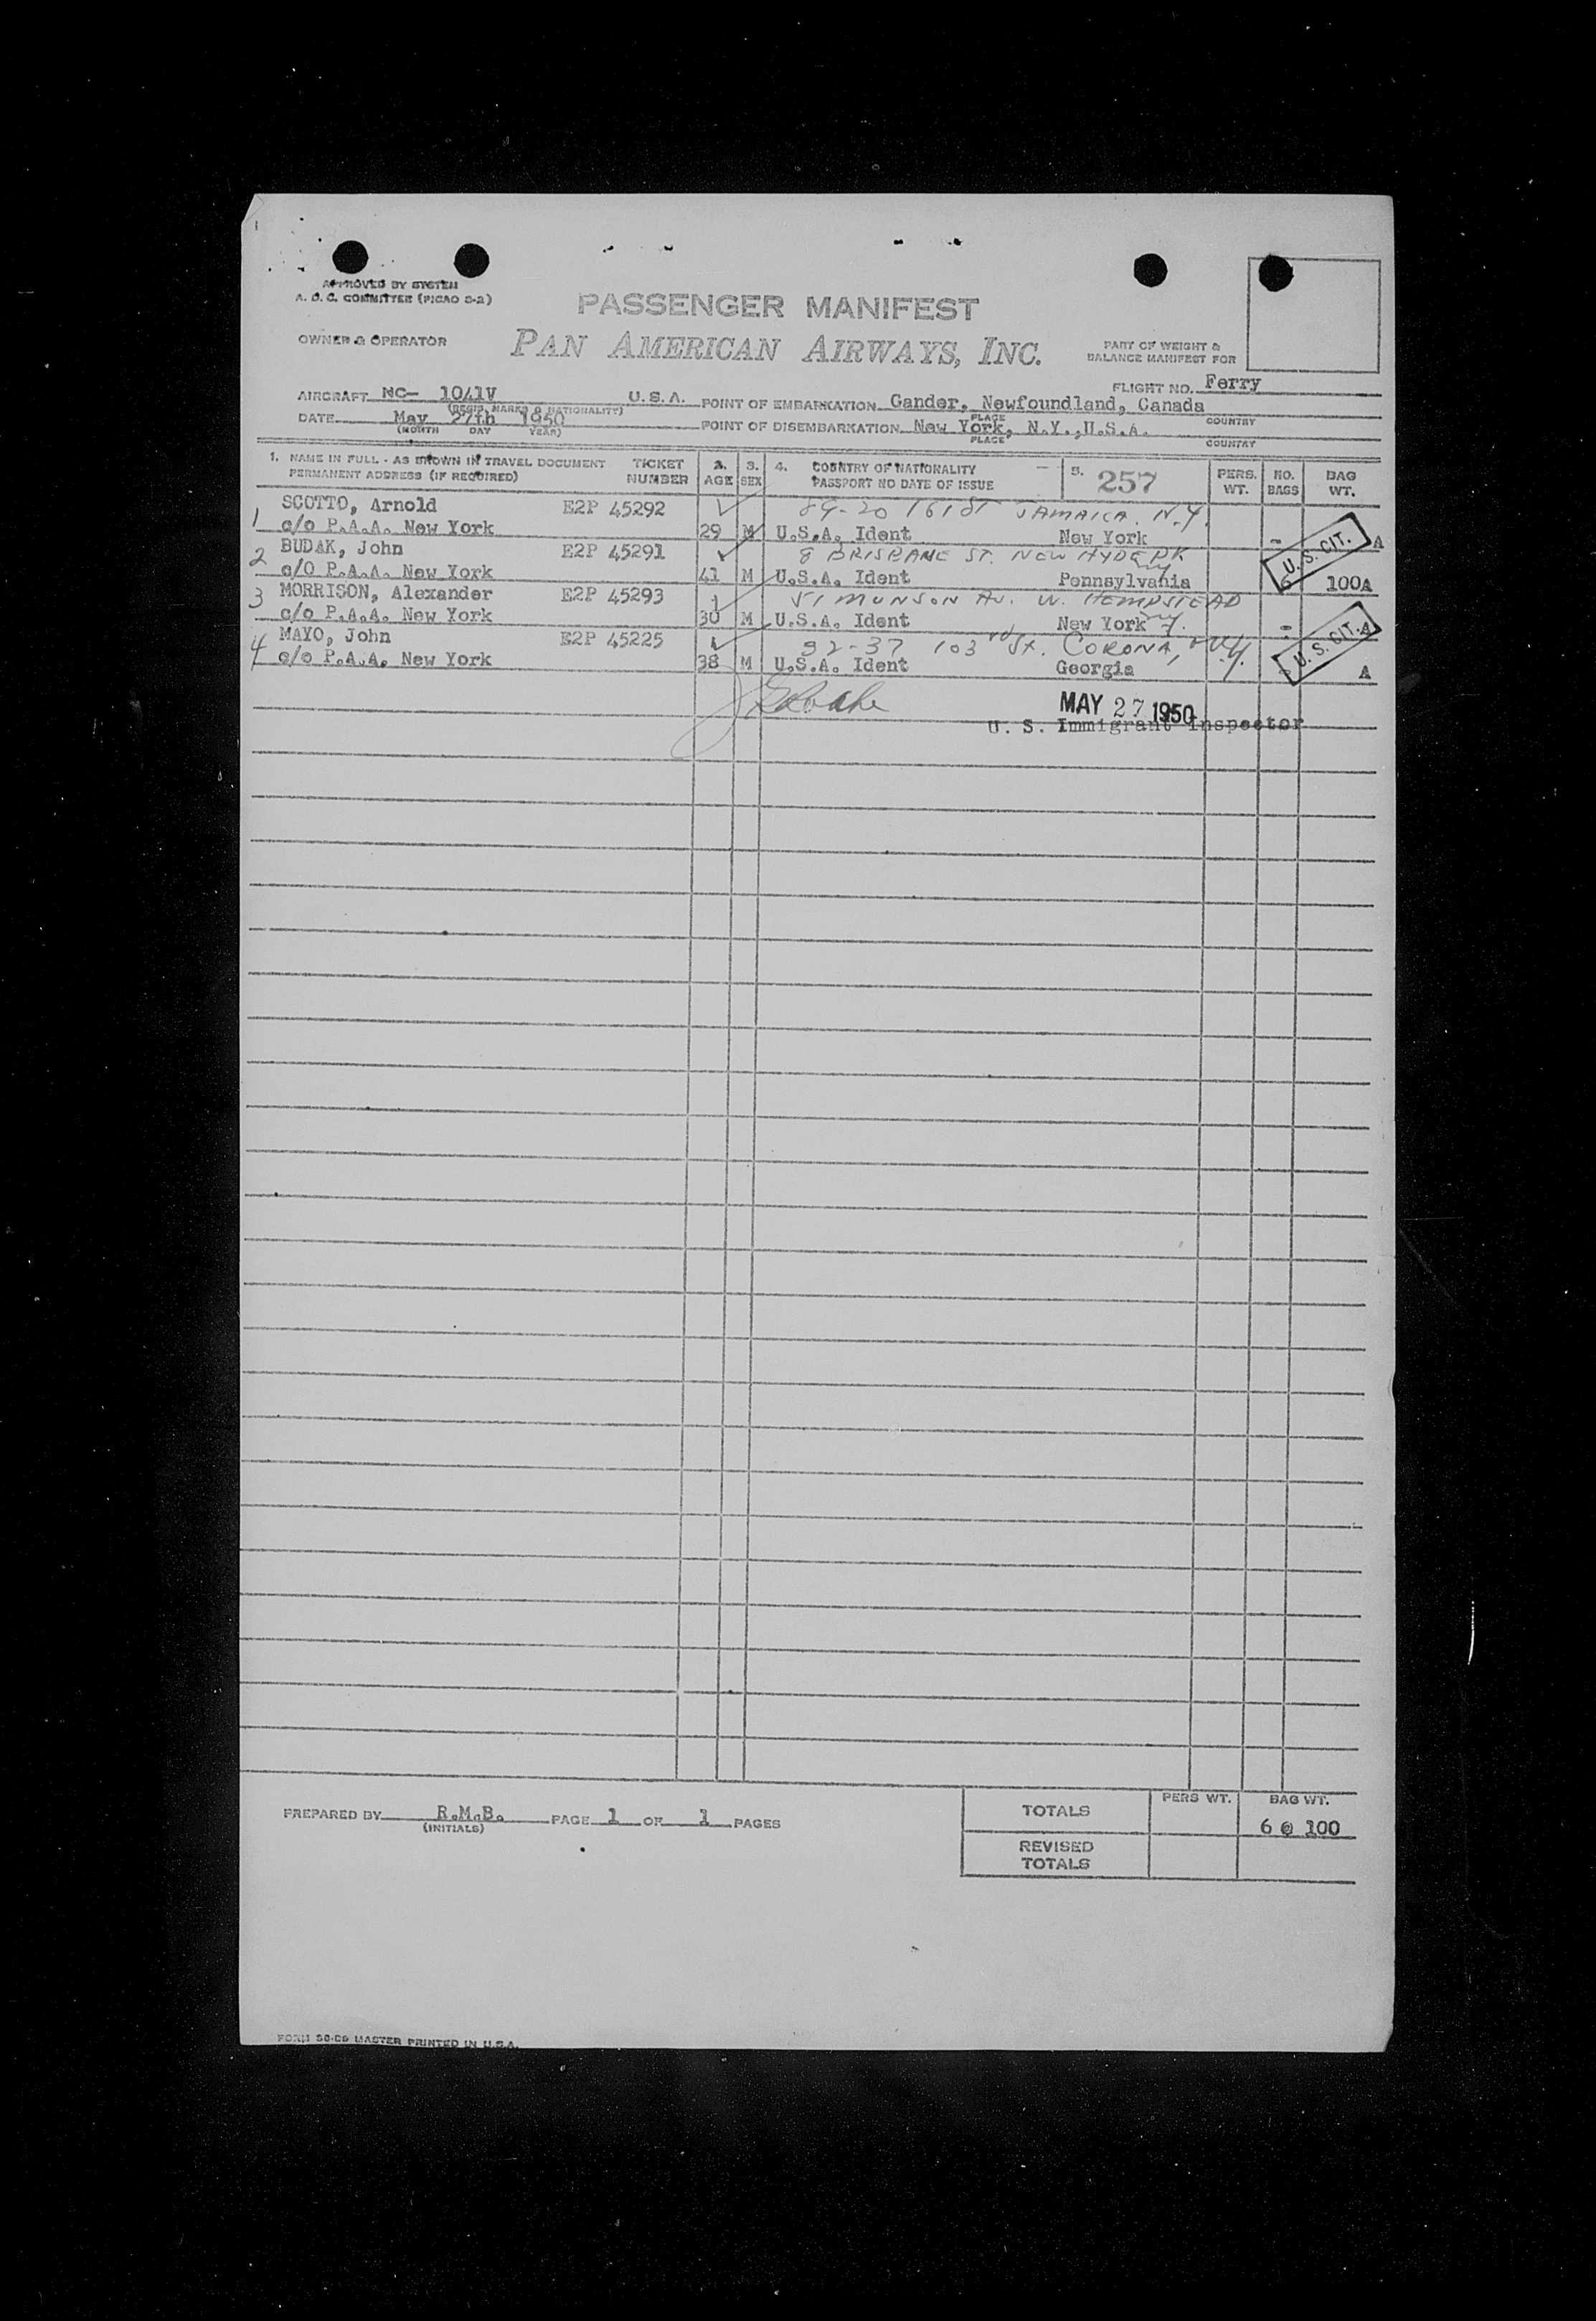 APPROVED BY SYSTEM
A. D. C. COMMITTEE (PICAO 8-2)
PASSENGER MANIFEST
OWNER & OPERATOR PAN AMERICAN AIRWAYS, INC.
PART OF WEIGHT &
BALANCE MANIFEST FOR
FLIGHT NO. Ferry
AIRCRAFT NC- 1041V U.S.A. POINT OF EMBARKATION Gander, Newfoundland, Canada
(REGIS. MARKS & NATIONALITY) PLACE COUNTRY
DATE May 27th 1950 POINT OF DISEMBARKATION New York, N.Y.,U.S.A.
(MONTH DAY YEAR) PLACE COUNTRY
1. NAME IN FULL - AS SHOWN IN TRAVEL DOCUMENT TICKET 2. 3. 4. COUNTRY OF NATIONALITY 5. 257 PERS. NO. BAG
PERMANENT ADDRESS (IF REQUIRED) NUMBER AGE SEX PASSPORT NO DATE OF ISSUE WT. BAGS WT.
SCOTTO, Arnold E2P 45292 89-20 161 ST JAMAICA. N.Y.
1 c/o P.A.A. New York 29 M U.S.A. Ident New York - A
U. S. CIT.
BUDAK, John E2P 45291 8 BRISBANE ST. NEW HYDE PK NY
2 c/O P.A.A. New York 41 M U.S.A. Ident Pennsylvania 6 100A
3 MORRISON, Alexander E2P 45293 51 MUNSON AV. W. HEMPSTEAD
c/o P.A.A. New York 30 M U.S.A. Ident New York N.Y. - A
U. S. CIT.
MAYO, John E2P 45225 92-37 103rd St. CORONA, N.Y.
4 c/o P.A.A. New York 38 M U.S.A. Ident Georgia - A
MAY 27 1950
U. S. Immigrant Inspector
PREPARED BY R.M.B. PAGE 1 OF 1 PAGES
(INITIALS)
TOTALS PERS WT. BAG WT.
6 @ 100
REVISED
TOTALS
MASTER PRINTED IN U.S.A.